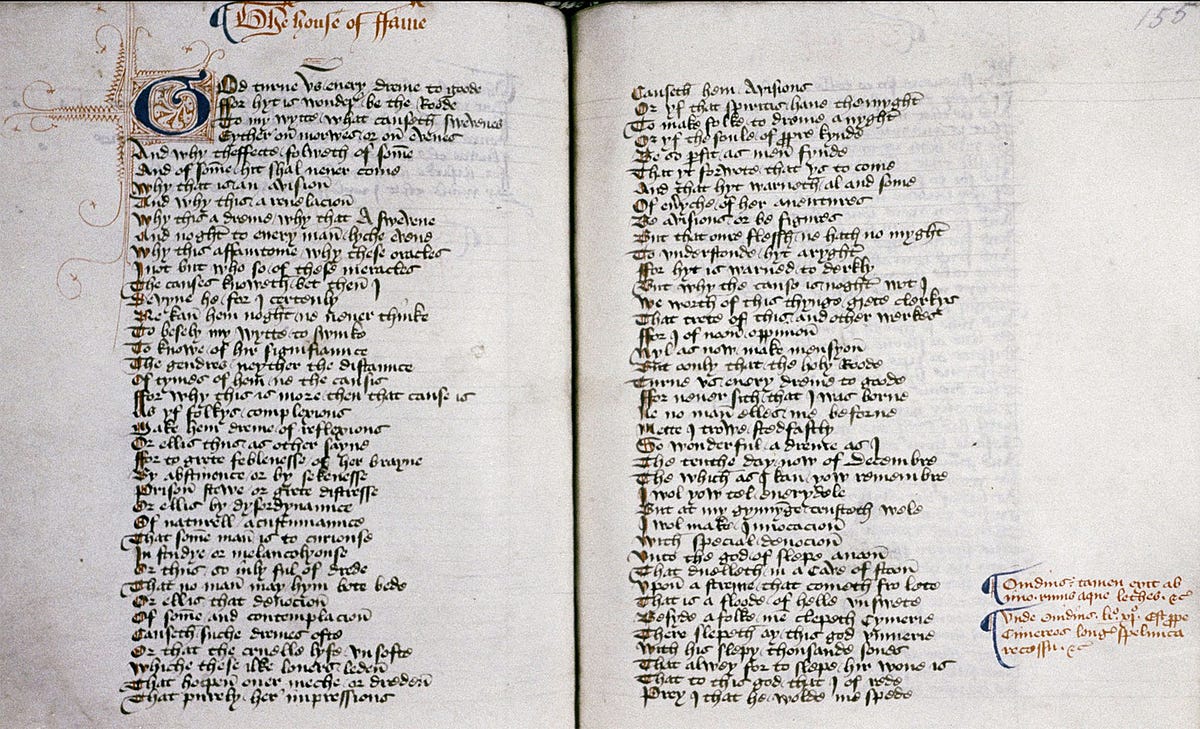 The house of ffame
God turne vs euery dreme to goode
ffor hyt is wonder be the Roode
To my wytte what causeth swevenes
Eyther on morwes or on evenes
And why theffecte folweth of some
And of some hit shal neuer come
Why that is an Avision
And why this a reuelacion
Why this a dreme why that A sweuene
And noght to euery man lyche euene
Why this affantome why these oracles
I not but who so of these meracles
The causes knoweth bet then I
Devyne he for I certenly
Ne kan hem noght ne neuer thinke
To besely my wytte to swinke
To knowe of hir signifiaunce
The gendres neyther the distaunce
Of tymes of hem ne the causis
ffor why this is more then that cause is
As yf folkys complexions
Make hem dreme of reflexions
Or ellis thus as other sayne
ffor to grete feblenesse of her brayne
By abstinence or by sekenesse
Prison stewe or grete distresse
Or ellis by dysordynaunce
Of naturell acustumaunce
That some man is to curiouse
In studye or melancolyouse
Or thus so inly ful of drede
That no man may hym bote bede
Or ellis that deuocion
Of some and contemplacion
Causeth suche dremes ofte
Or that the cruelle lyfe vnsofte
Whiche these ilke louers leden
That hopen ouer meche or dreden
That purely her impressions
155
Causeth hem Avisions
Or yf that spiritis haue the myght
To make folke to dreme a nyght
Or yf the soule of ppre kynde
Be so pfit as men fynde
That yt forwote that ys to come
And that hyt warneth al and some
Of euyche of her auentures
Be avisions or be figures
But that oure flessh ne hath no myght
To vnderstonde hyt aryght
ffor hyt is warned to derkly
But why the cause is noght wot I
We worth of this thynge grete clerkys
That trete of this and other werkes
ffor I of noon oppinion
Nyl as now make mensyon
But oonly that the holy Roode
Turne vs euery dreme to goode
ffor neuer sith that I was borne
Ne no man elles me beforne
Mette I trowe stedfastly
So wonderful a dreme as I
The tenthe day now of Decembre
The which as I kan yow remembre
I wol yow tel euerydele
But at my gynnynge trusteth wele
I wol make Inuocacion
With special deuocion
Vnto the god of slepe anoon
That duelleth in a Cave of stoon
Vpon a streme that cometh fro lete
That is a floode of helle vnswete
Besyde a folke me clepeth Cymerie
There slepeth ay this god vnmerie
With his slepy thousande sones
That alwey for to slepe hir wone is
That to this god that I of rede
Prey I that he wolde me spede
Ouidius tamen exit ab
imo riuus aque lethes &c
Vnde ouidius li° xj° Est ppe
Cimereos longo spelunca
recessu &c